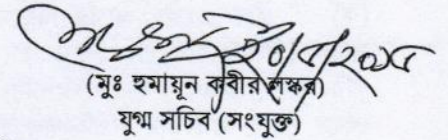 ২০/৮/২০১৫
(মুঃ হুমায়ূন কবীর লস্কর)
যুগ্ম সচিব (সংযুক্ত)